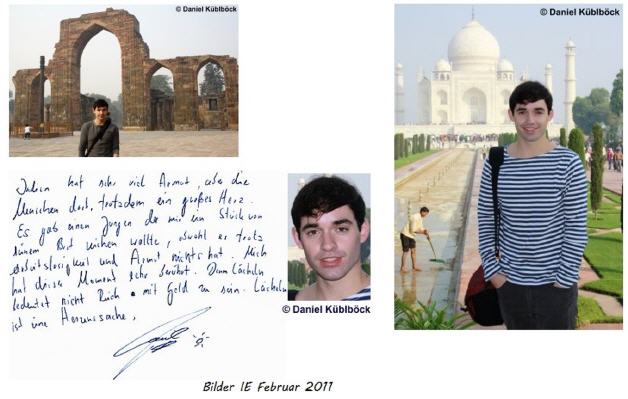 © Daniel Küblböck
© Daniel Küblböck
Indien hat sehr viel Armut, aber die
Menschen dort, trotzdem ein großes Herz.
Es gab einen Jungen der mir ein Stück von
seinem Brot reichen wollte, obwohl er trotz
Arbeitslosigkeit und Armut nichts hat. Mich
hat dieser Moment sehr berührt. Denn Lächeln
bedeutet nicht Reich mit Geld zu sein. Lächeln
ist eine Herzenssache.
© Daniel Küblböck
Bilder IE Februar 2011